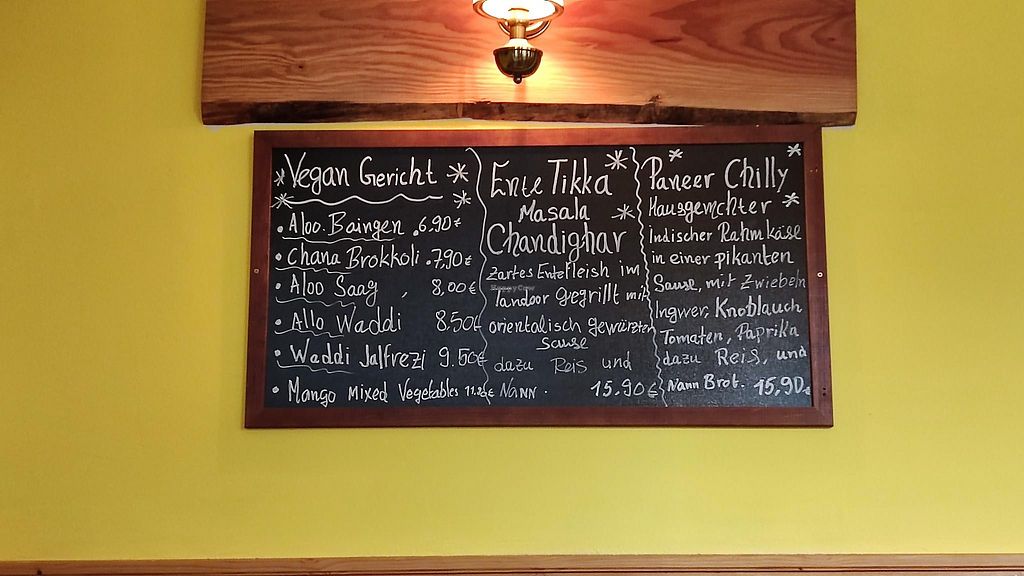 Vegan Gericht
Aloo Baingen 6.90€
Chana Brokkoli 7,90€
Aloo Saag 8,00€
Allo Waddi 8.50€
Waddi Jalfrezi 9.50€
Mango mixed Vegetables
Ente Tikka
Masala
Chandighar
zartes Entefleish im
Tandoor gegrillt mit
orientalisch gewürzten
Sause
dazu Reis und
Nann. 15.90€
Paneer Chilly
Hausgemchter
Indischer Rahmkäse
in einer pikanten
Sause, mit Zwiebeln
Ingwer, Knoblauch
Tomaten, Paprika
dazu Reis, und
Nann Brot. 15,90